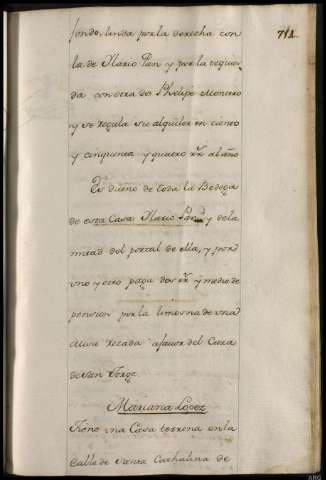 711
fondo, linda por la derecha con
la de Ilario Pan y por la izquier
da con otra de Phelipe Montero
y se regula su alquiler en ciento
y cinquenta y quatro rr. al año
Es dueño de toda la Bodega
de esta Casa Ilario Pan y de la
mitad del portal de ella, y por
uno y otro paga dos rr. y medio de
pension por la limosna de una
Misa rezada a favor del Cura
de San Jorge
Mariana Lopez
Tiene una Casa terrena en la
Calle de Santa Cathalina de